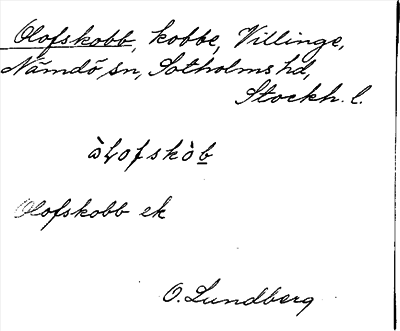 Olofskobb, kobbe, Villinge,
Nämdö sn, Sotholms hd,
Stockh. l.
òɫofskòb
Olofskobb ek
O. Lundberg